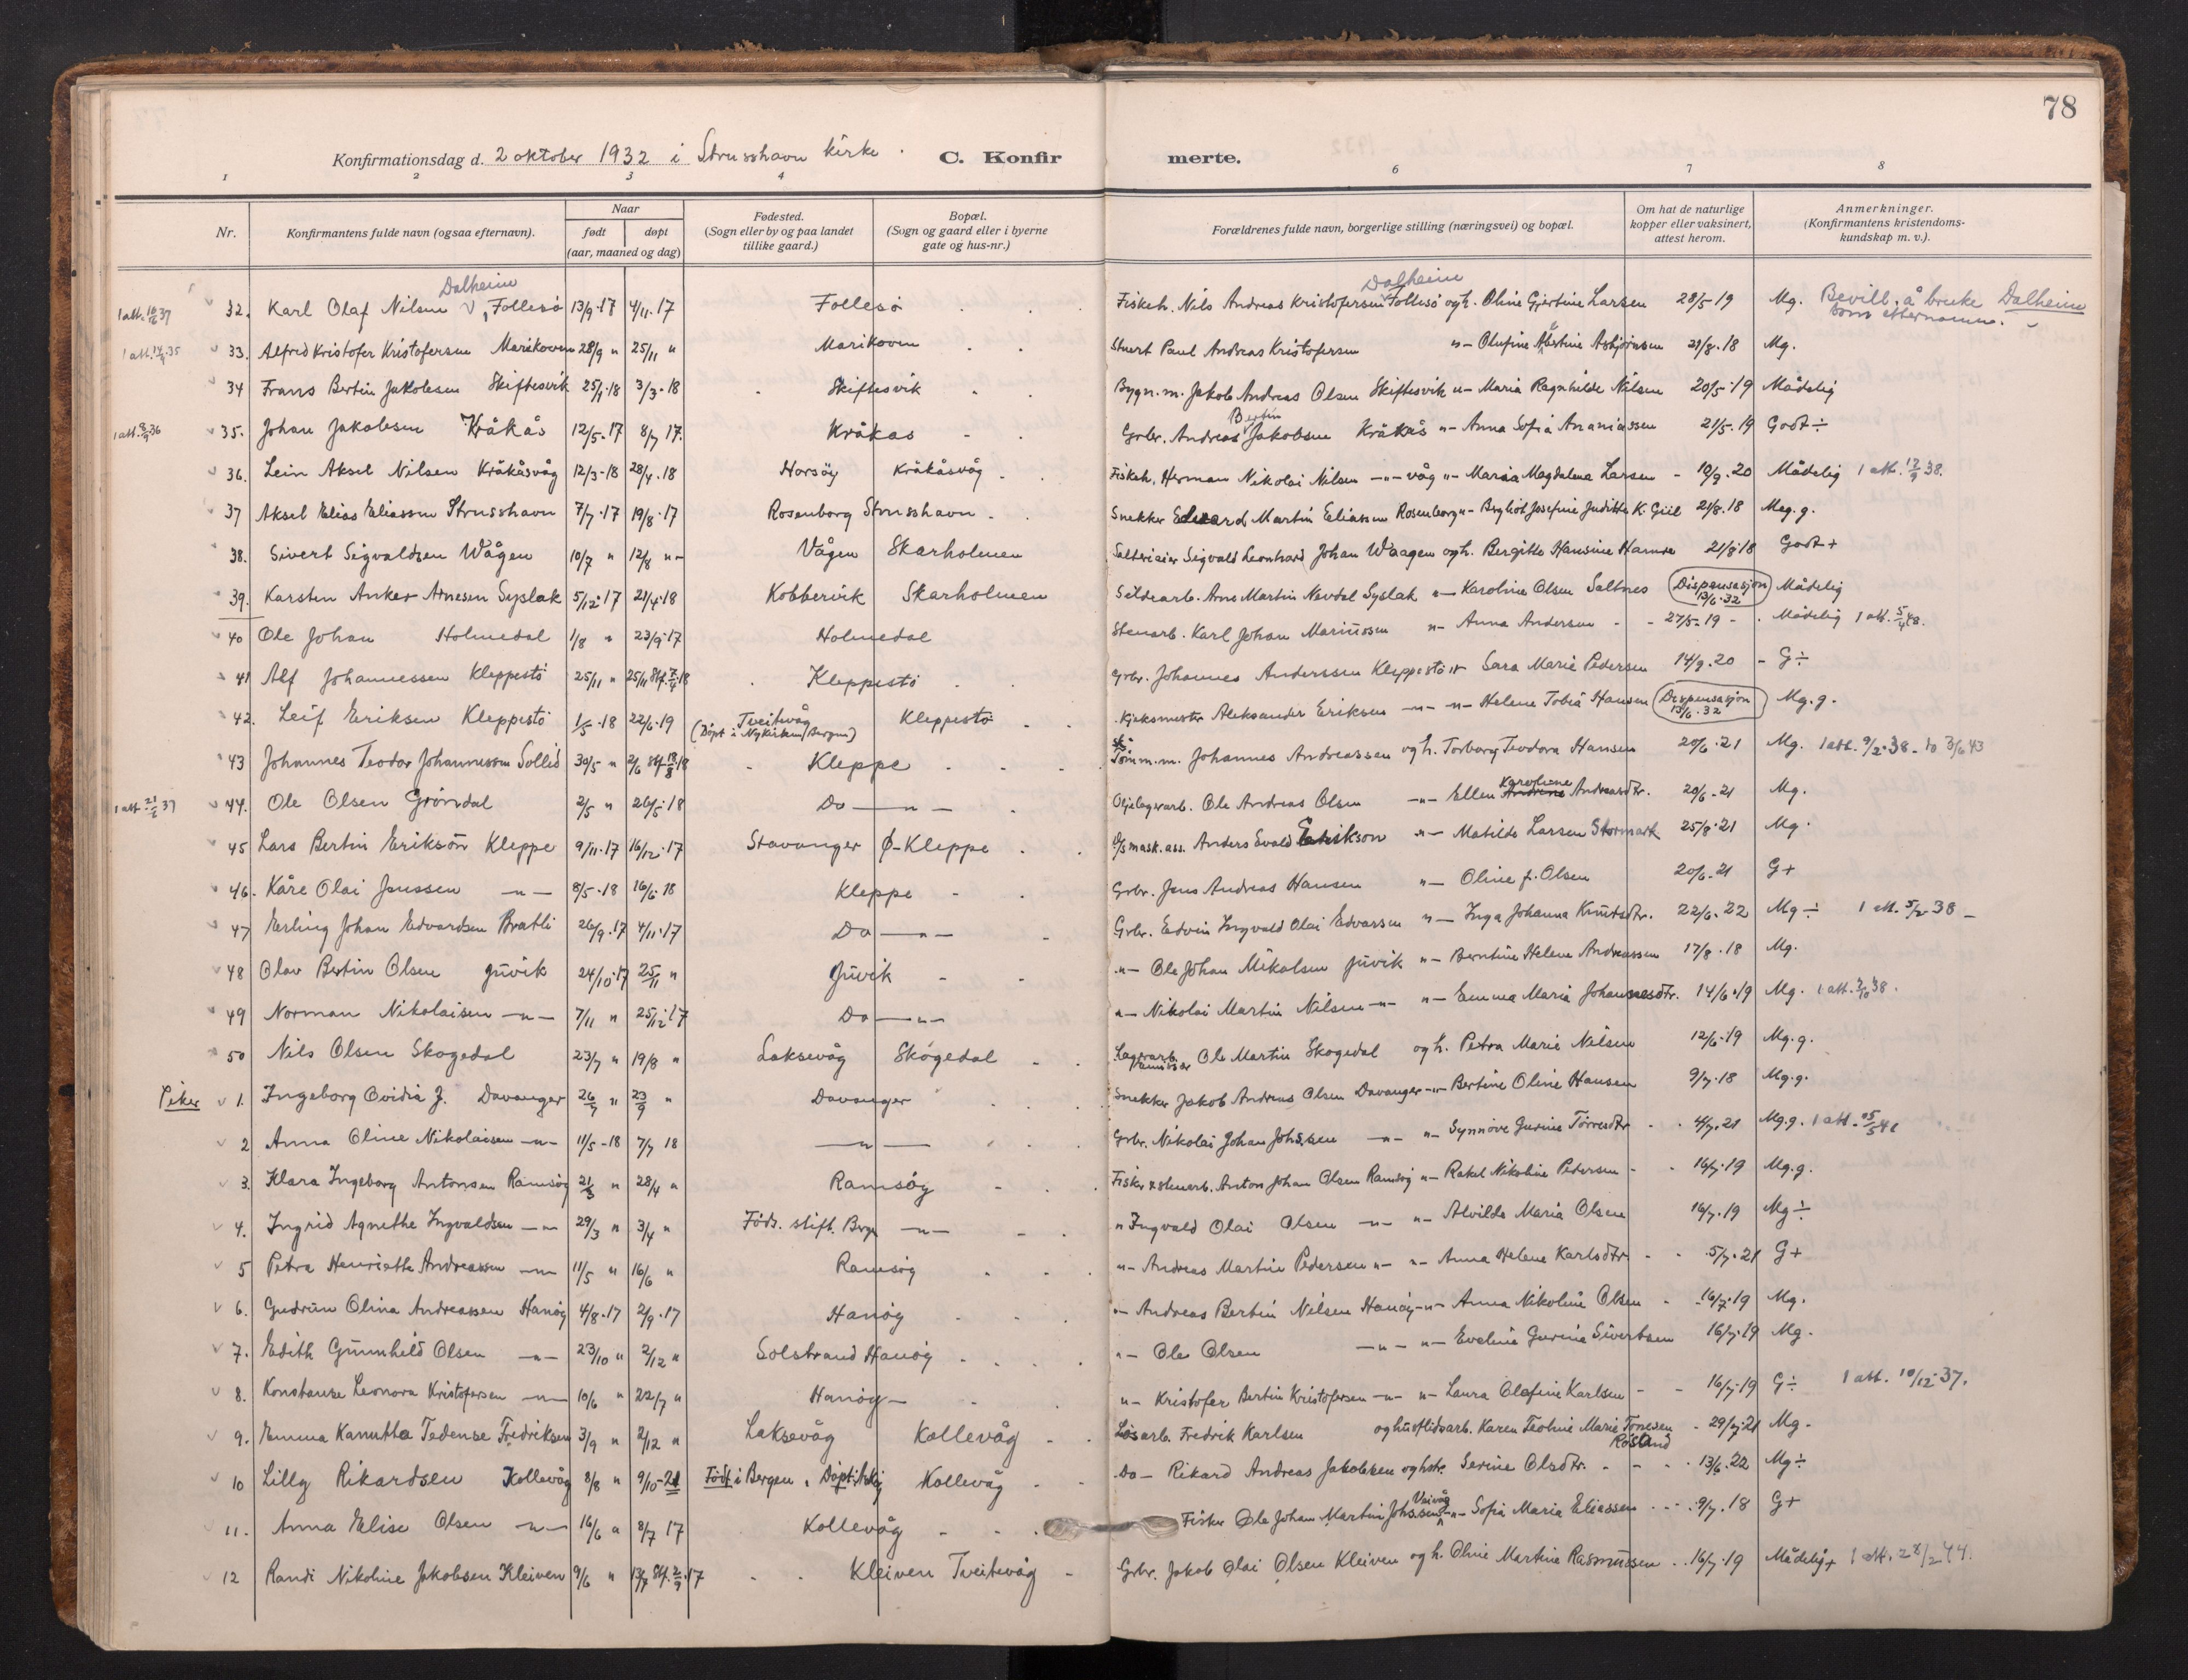 78
Konfirmationsdag d. 2 oktober 1932 i Strusshavn kirke. C. Konfirmerte.
1 2 3 4 6 7 8
Nr. Konfirmantens fulde navn (ogsaa efternavn). Naar født døpt (aar, maaned og dag) Fødested. (Sogn eller by og paa landet tillike gaard.) Bopæl. (Sogn og gaard eller i byerne gate og hus-nr.) Forældrenes fulde navn, borgerlige stilling (næringsvei) og bopæl. Om hat de naturlige kopper eller vaksinert, attest herom. Anmerkninger. (Konfirmantens kristendomskundskap m. v.).
Dalheim Dalheim
1 att. 10/6 37 32. Karl Olaf Nilsen Follesö 13/9-17 4/11-17 Follesö Fiskeh. Nils Andreas Kristofersen Follesö og h. Oline Gjertine Larsen 28/5-19 Mg. Bevill. å bruke Dalheim som etternavn.
33. Alfred Kristofer Kristofersen Marikoven 28/9 " 25/11 " Marikoven Stuert Paul Andreas Kristofersen "- Olufine Albertine Asbjörnsen 21/8-18 Mg.
34 Frans Bertin Jakobsen Skiftesvik 25/1-18 3/3-18 Skiftesvik Bygn.m. Jakob Andreas Olsen Skiftesvik "- Maria Ragnhilde Nilsen 20/5-19 Mådelig
1 att. 36 35. Johan Jakobsen Kråkås 12/5-17 8/7 17. Kråkås Grbr. Andreas Bertin Jakobsen Kråkås "- Anna Sofia Ananiassen 21/5-19 Godt ÷
36. Lein Aksel Nilsen Kråkåsvåg 12/3-18 28/4-18 Horsöy Kråkåsvåg Fiskeh. Herman Nikolai Nilsen -"-våg "- Maria Magdalena Larsen 10/9-20 Mådelig 1 att. 17/9 38.
37 Aksel Elias Eliassen Strusshavn 7/7-17 19/8-17 Rosenborg Strusshavn Snekker Edvard Martin Eliassen Rosenborg "- Bergliot Josefine Judithe K. Giil 21/8-18 Meg.g.
38. Sivert Sigvaldsen Wågen 10/7 " 12/8 "- Vågen Skarholmen Salteriaier Sigvald Leonhard Johan Waagen og h. Bergitte Hansine Hamre 21/8-18 Godt +
39. Karsten Anker Arnesen Syslak 5/12-17 21/4-18 Kobbervik Skarholmen Sildearb. Arne Martin Nevdal Syslak "- Karoline Olsen Saltnes Dispensasjon 13/6-32 Mådelig
40 Ole Johan Holmedal 1/8 " 23/9-17 Holmedal Stenarb. Karl Johan Mariussen "- Anna Andersen 27/5-19 Mådelig 1 att. 5/4 48.
41 Alf Johannessen Kleppestö 25/11 " 25/11 Stf. 7/4-18 Kleppestö Grbr. Johannes Anderssen Kleppestö "- Sara Marie Pedersen 14/9-20 G÷
42. Leif Eriksen Kleppestö 1/5-18 22/6-19 Tveitevåg (Döpt i Nykirken, Bergen) Kleppestö Kjeksmester Aleksander Eriksen -"- "- Helene Tobia Hansen Dispensasjon 13/6-32 Mg.g.
43 Johannes Teodor Johannessen Sollid 30/5 " 2/6 Stf. 18/8 18 Kleppe Tömm.m. Johannes Andreassen og h. Torborg Teodora Hansen 20/6-21 Mg. 1 att. 9/2-38 - 10 3/6 43
1 att. 37 44. Ole Olsen Gröndal 2/5 " 26/5-18 Do -"- Oljelagerarb. Ole Andreas Olsen -"- Ellen Karoline Andreasdtr. 20/6-21 Mg.
45 Lars Bertin Erikson Kleppe 9/11-17 16/12-17 Stavanger Ø-Kleppe D/S mask.ass. Anders Evald Erikson "- Matilde Larsen Stormark 25/8-21 Mg.
46. Kåre Olai Jenssen -"- 8/5-18 16/6-18 Kleppe Grbr. Jens Andreas Hansen "- Oline f. Olsen 20/6-21 G+
47 Erling Johan Edvardsen Bratli 26/9-17 4/11-17 Do -"- Grbr. Edvin Ingvald Olai Edvarssen "- Inga Johanna Knutsdtr. 22/6-22 Mg ÷ 1 att. 5/2-38
48 Olav Bertin Olsen Juvik 24/10-17 25/11 " Juvik "- Ole Johan Mikalsen Juvik "- Berntine Helene Andreassen 17/8-18 Mg.
49 Norman Nikolaisen -"- 7/11 " 25/12-17 Do -"- "- Nikolai Martin Nilsen -"- "- Emma Maria Johannesdtr. 14/6-19 Mg. 1 att. 38.
50 Nils Olsen Skogedal 23/7 " 19/8 " Laksevåg Skogedal Lagerarb. Ole Martin Skogedal og h. Petra Marie Nilsen 12/6-19 Mg.g.
Piker 1. Ingeborg Ovidia J. Davanger 26/7 " 23/9 " Davanger Snekker Jakob Andreas Olsen Davanger -"- Bertine Oline Hansen 9/7-18 Mg.g.
2 Anna Oline Nikolaisen -"- 11/5-18 7/7 18 -"- Grbr. Nikolai Johan Johs.sen -"- "- Synnöve Gurine Torresdtr 4/7-21 Mg.g. 1 att.
3. Klara Ingeborg Antonsen Ramsöy 21/3 " 28/4 " Ramsöy Fisker & stenarb. Anton Johan Olsen Ramsöy "- Rakel Nikoline Pedersen 16/7-19 Mg.g.
4. Ingrid Agnethe Ingvaldsen -"- 29/3 " 3/4 " Föds. stift. Berge -"- " Ingvald Olai Olsen -"- "- Alvilde Maria Olsen 16/7-19 Mg÷
5 Petra Henriette Andreassen -"- 11/5 " 16/6 " Ramsöy "- Andreas Martin Pedersen "- "- Anna Helene Karlsdtr 5/7-21 G+
6. Gudrun Olina Andreassen Hanöy 4/8-17 2/9-17 Hanöy "- Andreas Bertin Nilsen Hanöy -"- Anna Nikoline Olsen 16/7-19 Mg.
7. Edith Gunnhild Olsen -"- 23/10 " 2/12 " Solstrand Hanöy "- Ole Olsen -"- "- Eveline Gurine Sivertsen 16/7-19 Mg.
8. Konstanse Leonora Kristofersen -"- 10/6 " 22/7 " Hanöy "- Kristofer Bertin Kristofersen -"- "- Laura Olefine Karlsen 16/7-19 G÷ 1 att. 10/12-37.
9. Emma Kanutta Tedense Fredriksen 3/9 " 2/12 " Laksevåg Kollevåg Lösarb. Fredrik Karlsen og husflidsarb. Karen Teoline Marie Tonesen Rosland 29/7-21 Mg.
10 Lilly Rikardsen Kollevåg 8/8 " 9/10-21 Födt i Bergen. Döpt i Askøj Kollevåg Do- Rikard Andreas Jakobsen og hstr. Serine Olsdtr. 13/6-22 Mg÷
11. Anna Elise Olsen -"- 16/6 " 8/7 17 Kollevåg Fisker Ole Johan Martin Johs.sen Vaivåg -"- Sofia Maria Eliassen 9/7-18 G+
12 Randi Nikoline Jakobsen Kleiven 9/6 " 13/7 Stf. 2/9-17 Kleiven Tveitevåg Grbr. Jakob Olai Olsen Kleiven og h. Oline Martine Rasmussen 16/7-19 Mådelig + 1 att. 28/2 44.